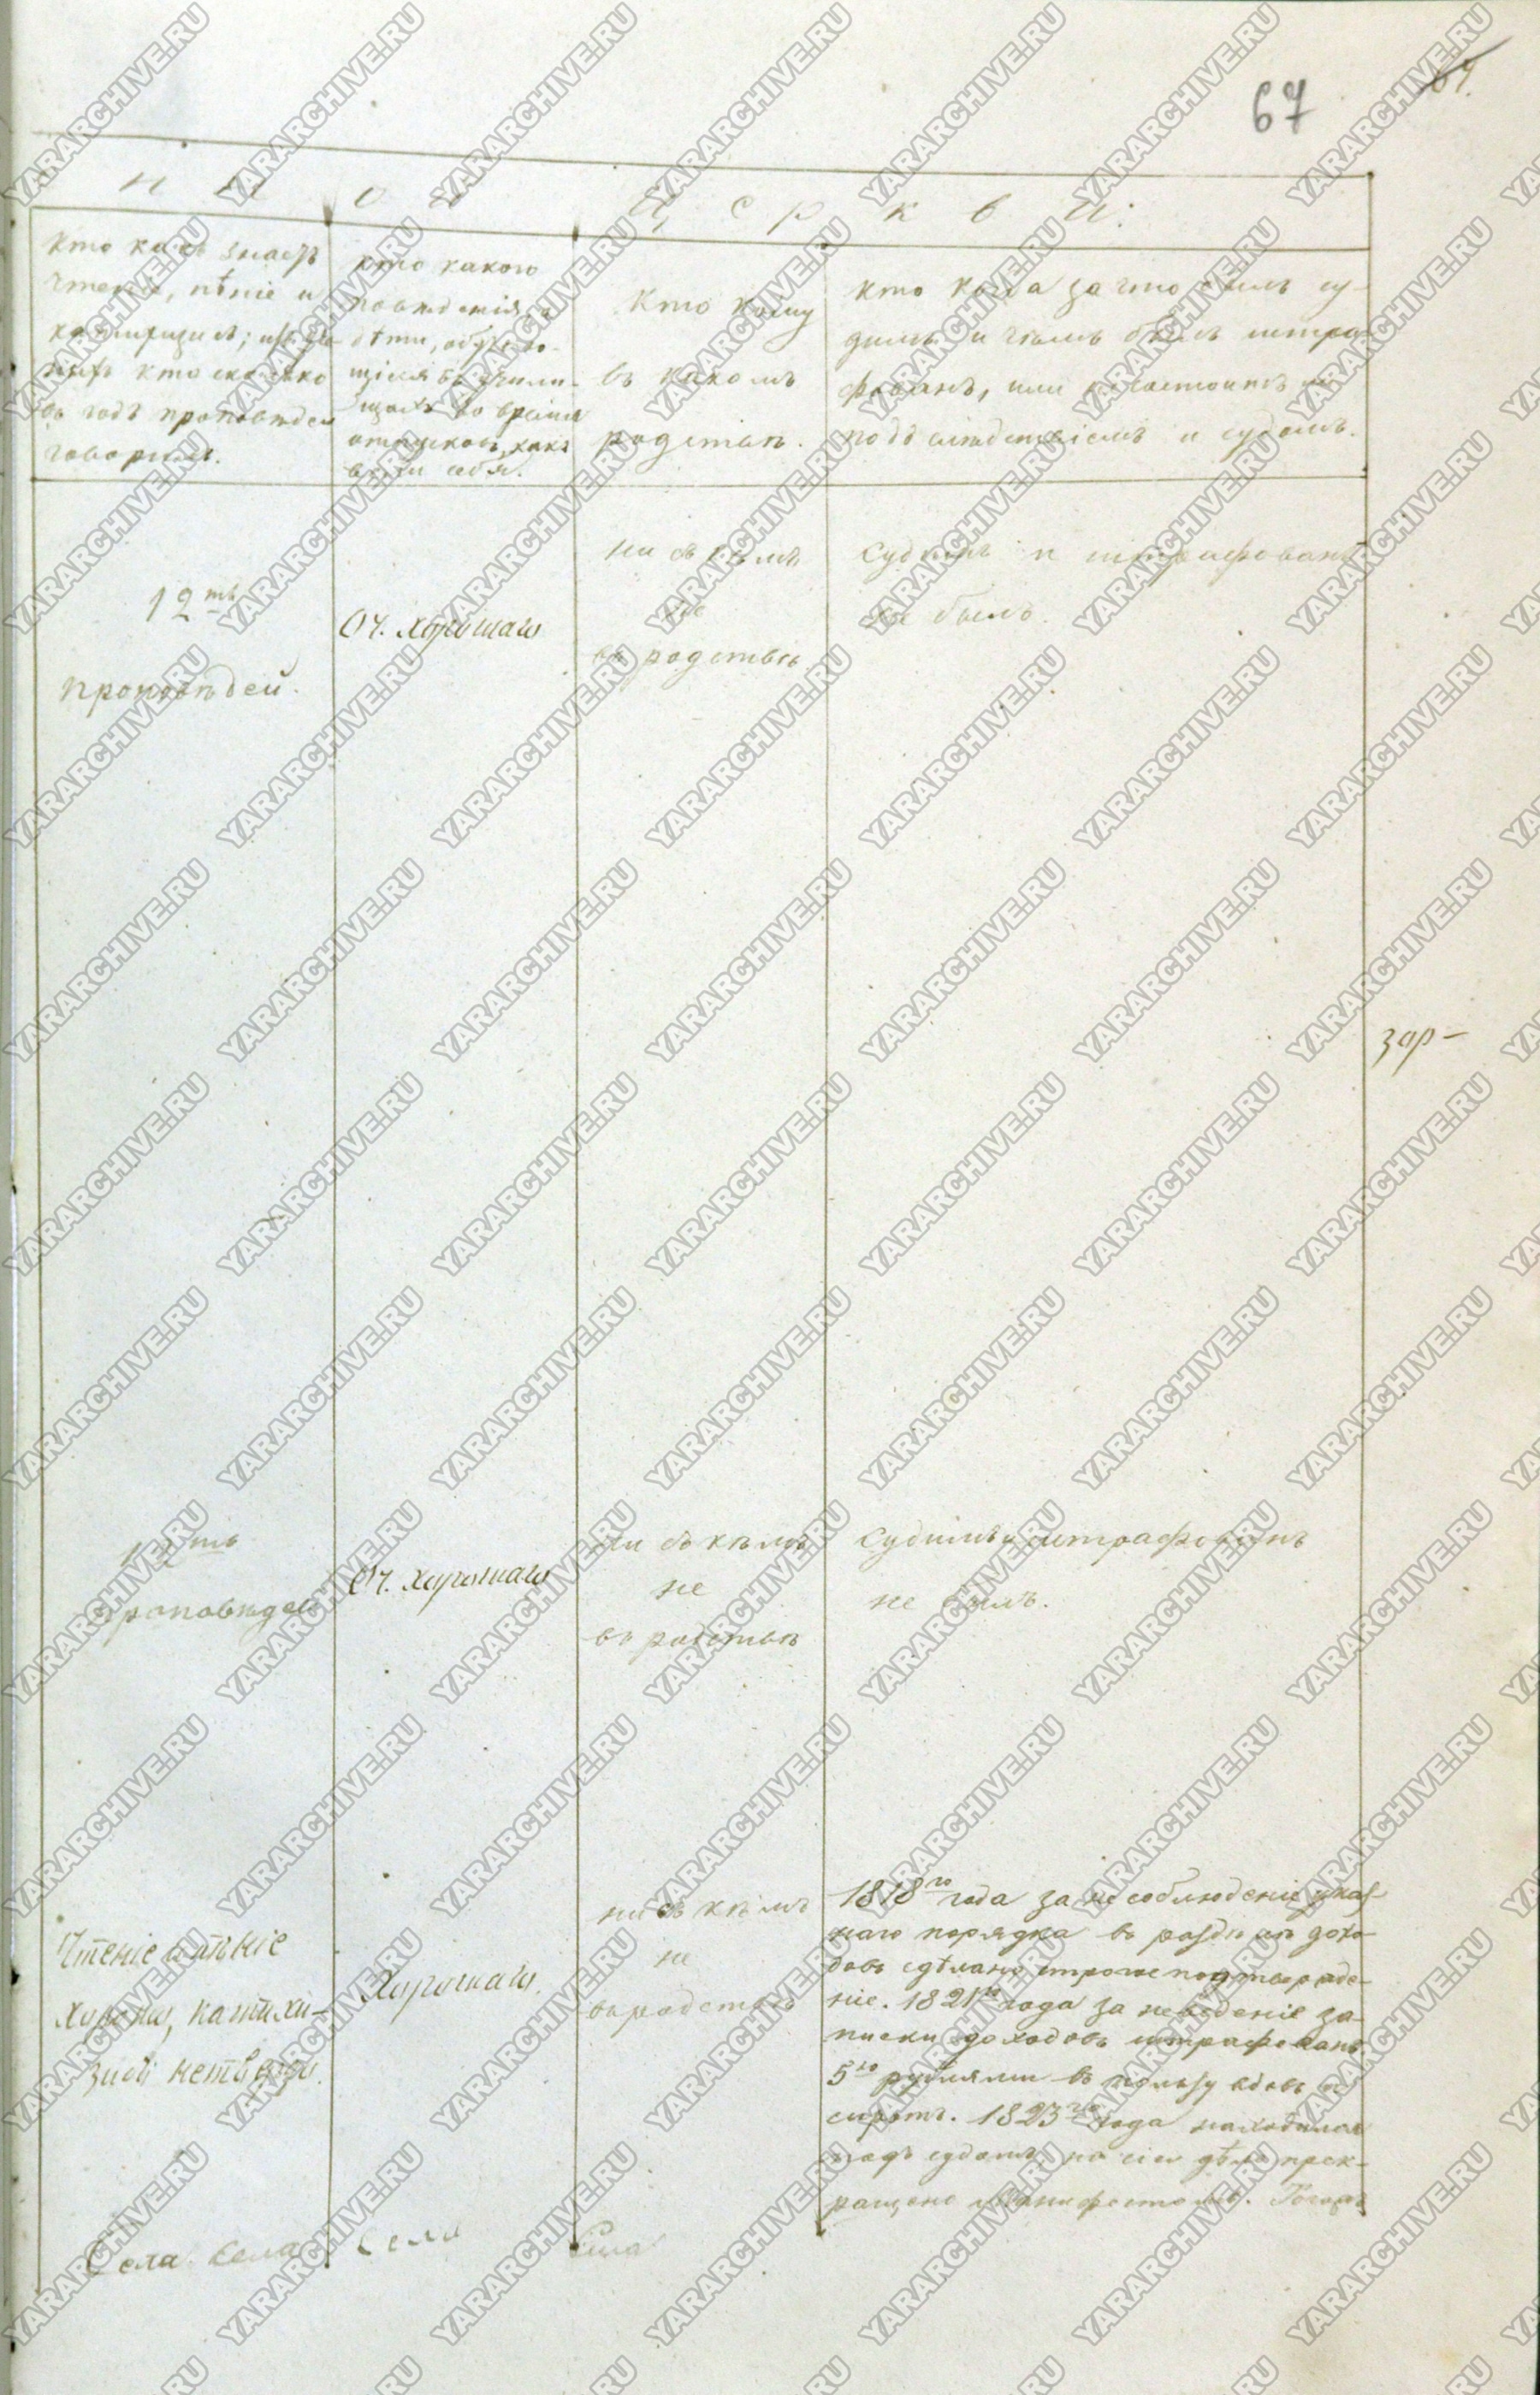 67
67.
н н о й Ц е р к в и.
Кто какъ знаетъ
чтеніе, пѣніе и
катихизисъ; и
кто сколько
въ годъ проповѣдей
говорилъ.
кто какого
поведенія, а
дѣти, обучаю-
щіяся въ учили-
щахъ во время
отпусковъ, какъ
вели себя.
Кто кому
въ какомъ
родствѣ.
кто когда за что былъ су-
димъ и чѣмъ былъ штра-
фованъ, или не состоитъ ли
подъ слѣдствіемъ и судомъ.
12ть
проповѣдей.
Оч. хорошаго
ни съ кѣмъ
не
въ родствѣ
Судимъ и штрафованъ
не былъ.
зар-
12ть
проповѣдей
Оч. хорошаго
ни съ кѣмъ
не
въ родствѣ
Судимъ и штрафованъ
не былъ.
Чтеніе и пѣніе
хорошо, катихи-
зисъ нетвердо.
Хорошаго.
ни съ кѣмъ
не
въ родствѣ
1818го года за несоблюденіе указ-
наго порядка въ раздѣлѣ дохо-
довъ сдѣлано строгое подтвержде-
ніе. 1821го года за неведеніе за-
писки доходовъ штрафованъ
5ю рублями въ пользу вдовъ и
сиротъ. 1823го года находился
подъ судомъ, но сіе дѣло прек-
ращено Манифестомъ.
Села Села Села Села